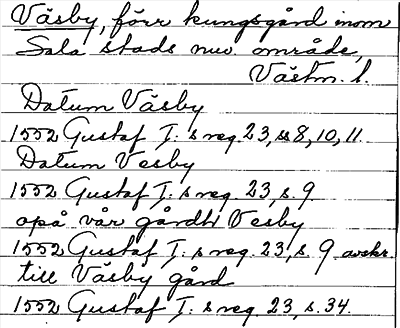 Väsby, förr kungsgård inom
Sala stads nuv. område,
Västm. l.
Datum Väsby
1552 Gustaf I: s reg. 23, ss 8, 10, 11.
Datum Vesby
1552 Gustaf I: s reg. 23, s. 9
opå vår gårdh Vesby
1552 Gustaf I: s reg. 23, s. 9 avskr.
till Väsby gård
1552 Gustaf I: s reg. 23, s. 34.